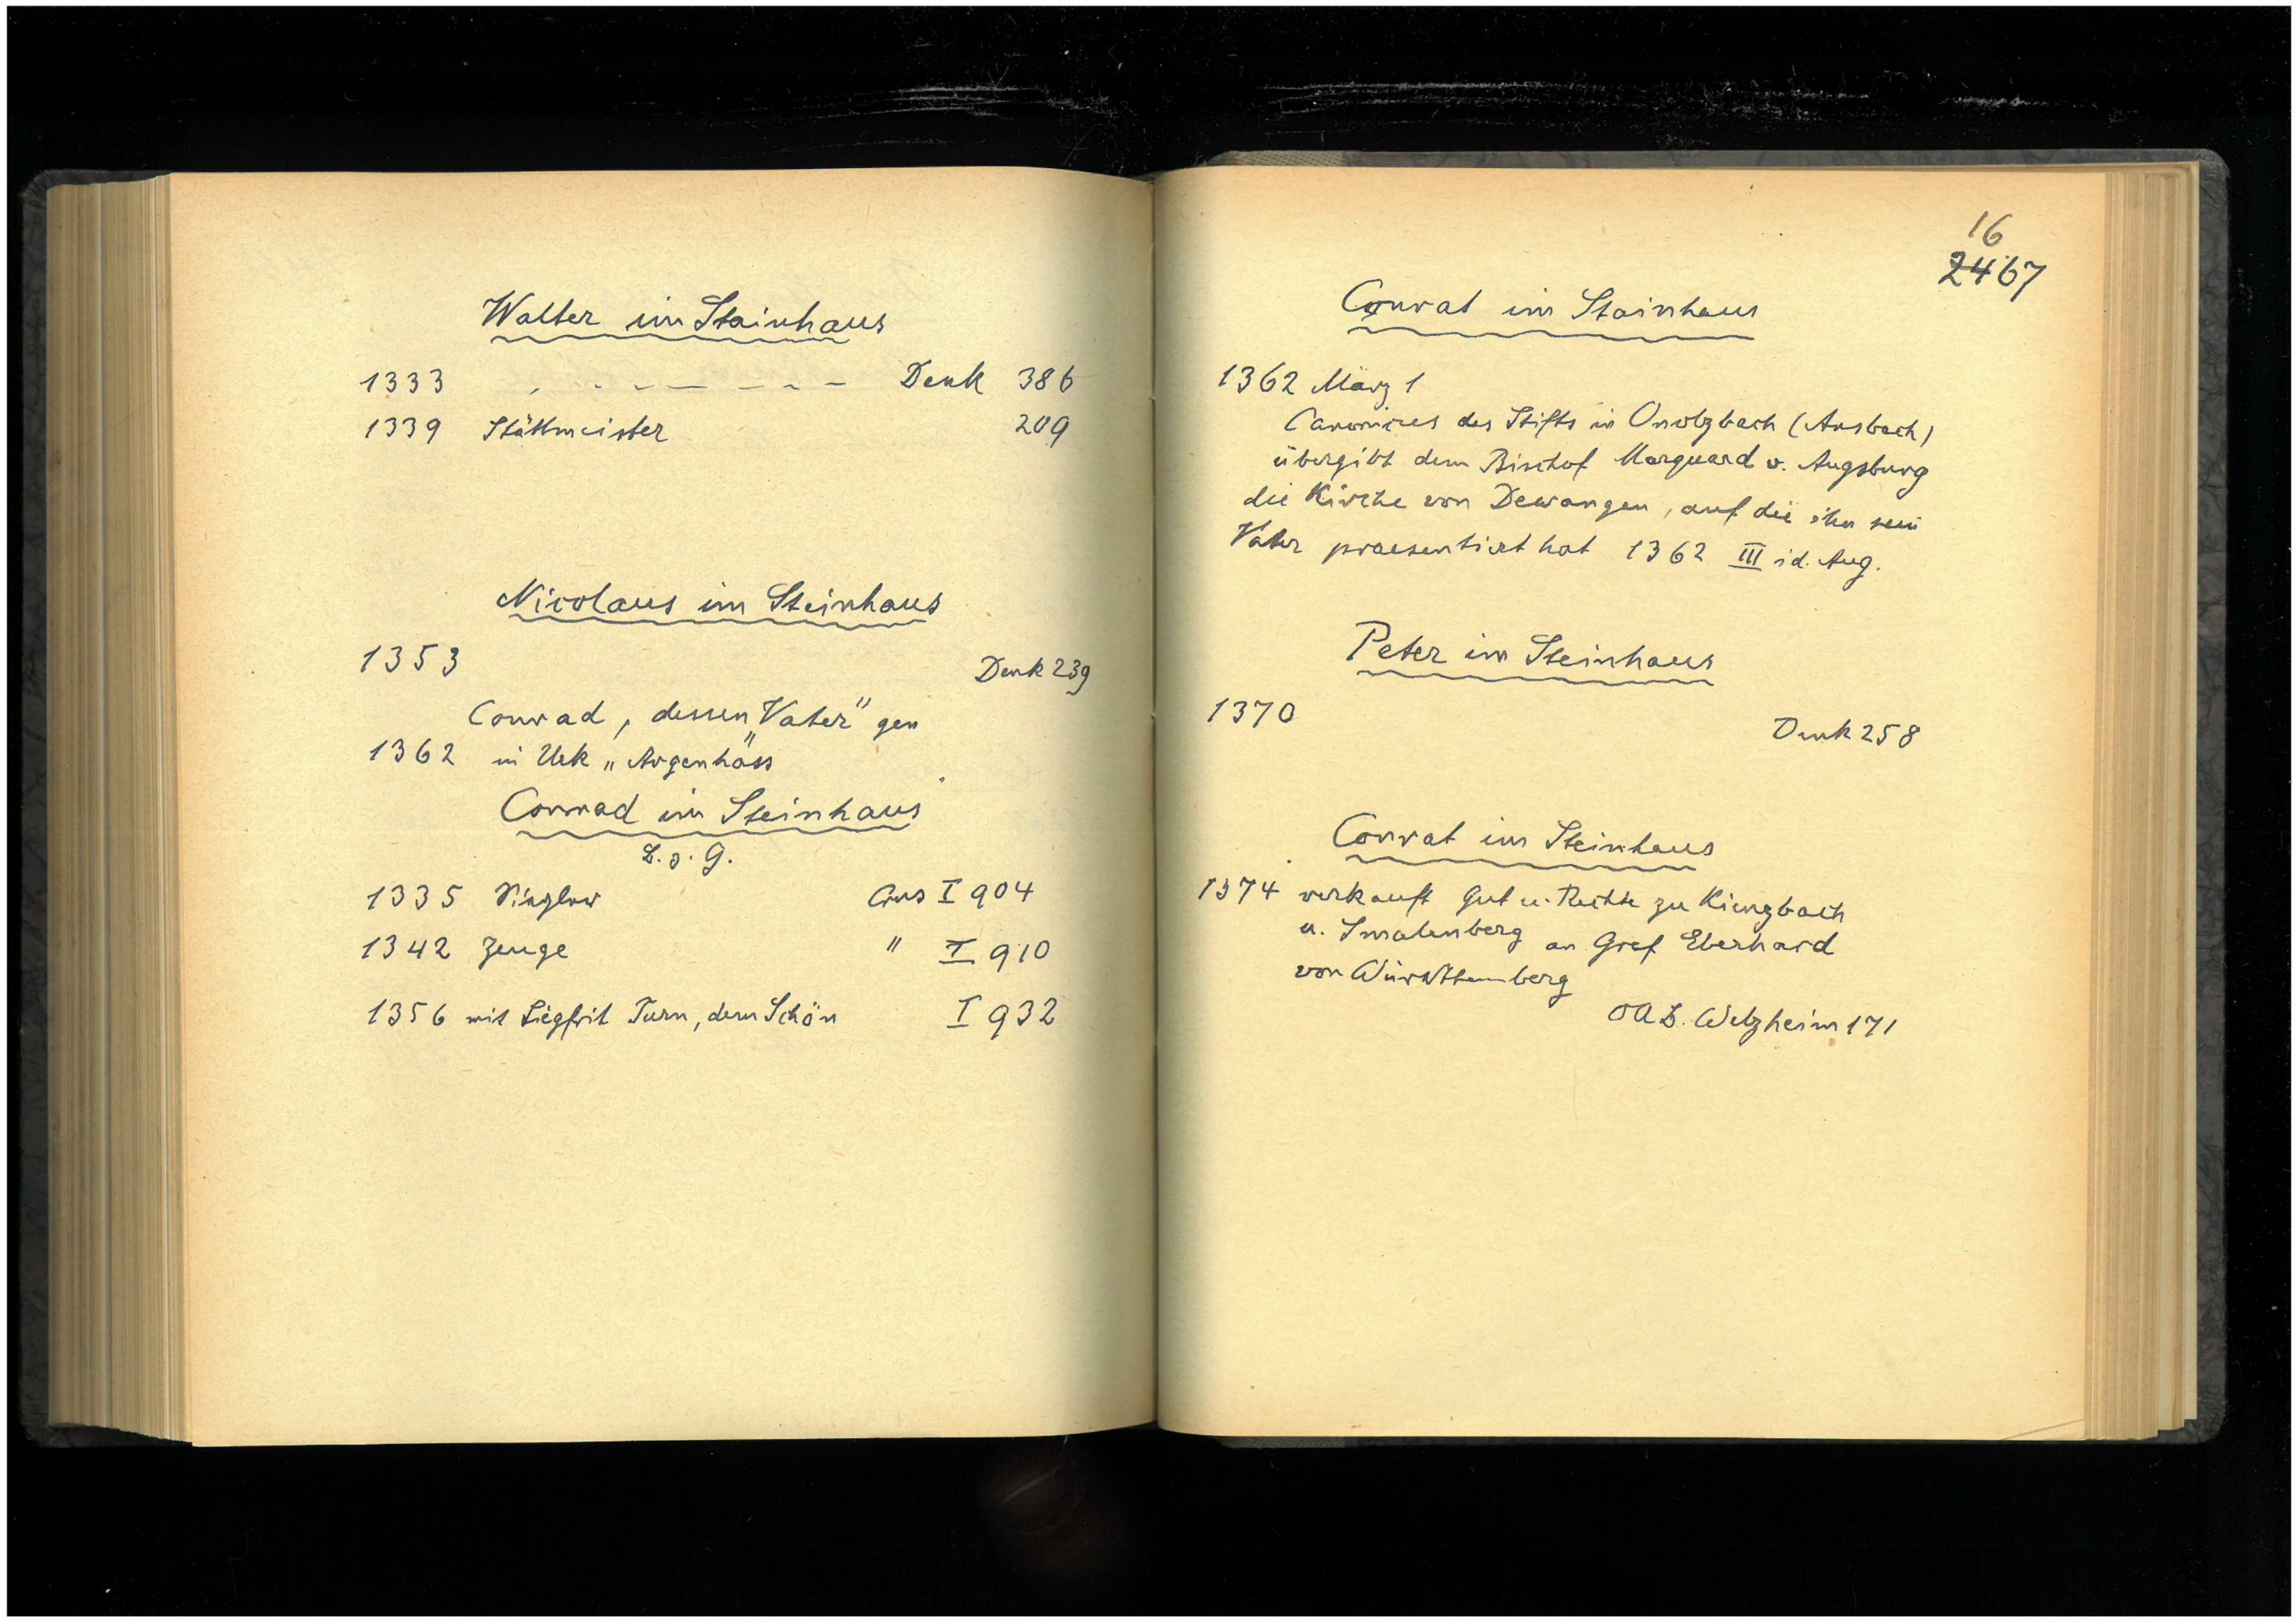 Walter im Steinhaus
1333 - - - - - - - - Denk 386
1339 Stättmeister 209
Nicolaus im Steinhaus
1353
Denk 239
Conrad, dessen "Vater" gen
1362 in Urk „Argenhäss"
Conrad im Steinhaus
B. z. G.
1335 Crus I 904
1342 Zeuge " I 910
1356 mit Siegfrit Turn, dem Schön I 932
16
2467
Conrat im Stainhaus
1362 März 1
Canonicus des Stifts in Onolzbach (Ansbach)
übergibt dem Bischof Marquard v. Augsburg
die Kirche von Dewangen, auf die ihn sein
Vater praesentiert hat 1362 III id. Aug.
Peter im Steinhaus
1370
Denk 258
Conrat im Steinhaus
1374 verkauft Gut u. Rechte zu Kienzbach
u. Smalenberg an Graf Eberhard
von Württemberg
OAB. Welzheim 171